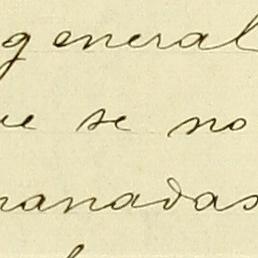 general
ue se no
ranadas